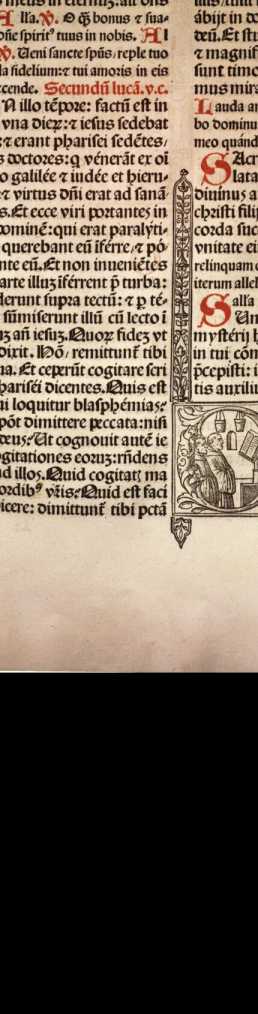 meus in eternuz: all' ons
lła. ℣. O q̄ȝ bonus ⁊ sua-
dn̄e spirit⁹ tuus in nobis. A l
℣. Ueni sancte spūs, reple tuo
fidelium: ⁊ tui amoris in eis
cende. Secundū lucā. v. c.
N illo tēpore: factū est in
vna dierꝝ: ⁊ iesus sedebat
⁊ erant pharisei sedētes,
doctores: q̄ vénerāt ex oī
galilée ⁊ iudée et hieru-
⁊ virtus dn̄i erat ad sanā-
s. Et ecce viri portantes in
hominē: qui erat paralýti-
querebant eū iferre, ⁊ pó-
nte eū. Et non inueniētes
arte illuz iférrent p̄ turba:
derunt supra tectū: ⁊ ꝑ té-
sūmiserunt illū cū lecto ī
an̄ iesuz. Quoꝝ fidez vt
dixit. Hō, remittunt̄ tibi
na. Et ceperūt cogitare scri
harisei dicentes. Quis est
ui loquitur blasphémias?
pót dimittere peccata: nisi
deus? Ut cognouit autē ie
gitationes eoruz: rn̄dens
d illos. Quid cogitatꝭ ma
cordib⁹ vr̄is? Quid est faci
icere: dimittunt̄ tibi pctā
ábijt in
deū. Et
⁊ magnif
sunt timo
mus mira
Lauda
bo dominu
meo quámd
SAcr
lata
diuinus a
christi filij
corda
vnitate ei
relinquam
iterum allel
SAlla
Un
mystérij h
in tui cóm
p̄cepisti: i
tis auxiliu